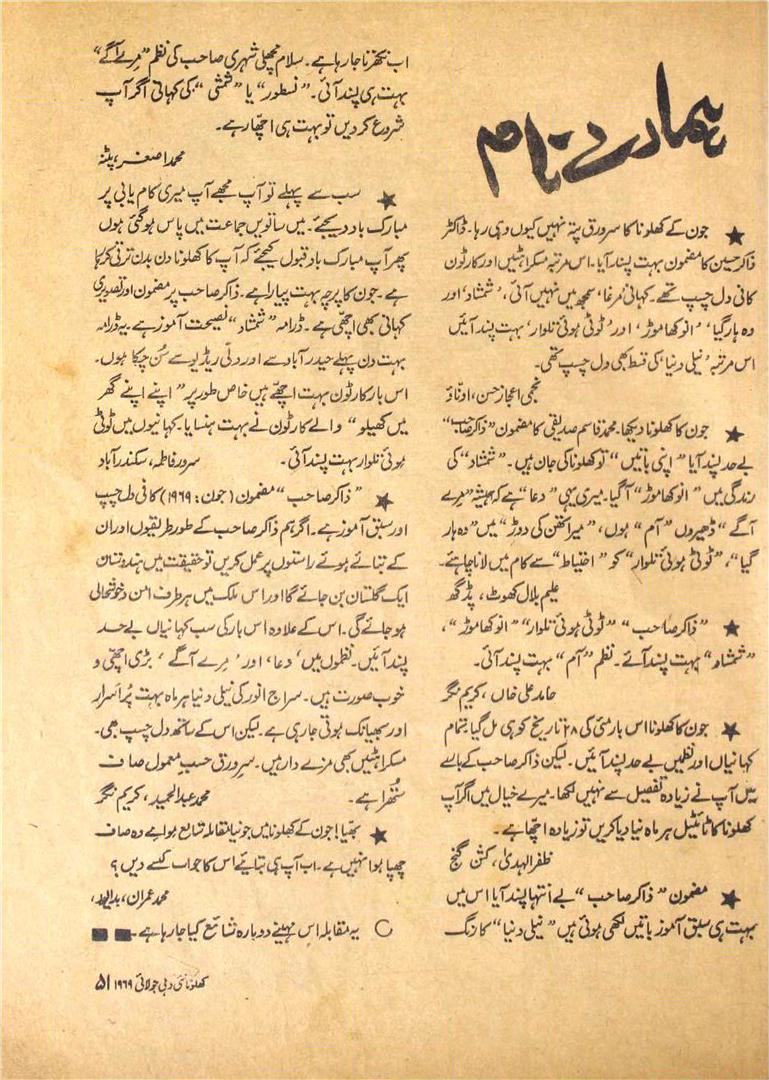 ہمارے نام
★ جون کے کھلونا کا سرورق پتہ نہیں کیوں وہی رہا۔ ڈاکٹر
ذاکر حسین کا مضمون بہت پسند آیا۔ اس مرتبہ مسکراہٹیں اور کارٹون
کافی دل چسپ تھے۔ کہانی 'مرغا، سمجھ میں نہیں آئی، 'شمشاد' اور
وہ ہار گیا'، 'انوکھا موڑ'، اور 'ٹوٹی ہوئی تلوار' بہت پسند آئیں
اس مرتبہ 'نیلی دنیا' کی قسط بھی دل چسپ تھی۔
نجمی اعجاز حسن، اوناؤ
★ جون کا کھلونا دیکھا۔ محمد قاسم صدیقی کا مضمون "ذاکر صاحب"
بے حد پسند آیا "اپنی باتیں" تو کھلونا کی جان ہیں۔ "شمشاد" کی
زندگی میں "انوکھا موڑ" آگیا۔ میری یہی "دعا" ہے کہ ہمیشہ "مرے
آگے" ڈھیروں "آم" ہوں، "میراتھن کی دوڑ" میں "وہ ہار
گیا"، "ٹوٹی ہوئی تلوار" کو "احتیاط" سے کام میں لانا چاہئے۔
علیم بلال کھوٹ، پڈگھ
★ "ذاکر صاحب" "ٹوٹی ہوئی تلوار" "انوکھا موڑ"،
"شمشاد" بہت پسند آئے۔ نظم "آم" بہت پسند آئی۔
حامد علی خاں، کریم نگر
★ جون کا کھلونا اس بار مئی کی ۲۸ تاریخ کو ہی مل گیا۔ تمام
کہانیاں اور نظمیں بے حد پسند آئیں۔ لیکن ذاکر صاحب کے بارے
میں آپ نے زیادہ تفصیل سے نہیں لکھا۔ میرے خیال میں اگر آپ
کھلونا کا ٹائیٹل ہر ماہ نیا دیا کریں تو زیادہ اچھا ہے۔
ظفر الہدیٰ، کشن گنج
★ مضمون "ذاکر صاحب" بے انتہا پسند آیا اس میں
بہت ہی سبق آموز باتیں لکھی ہوئی ہیں "نیلی دنیا" کا رنگ
اب نکھرتا جا رہا ہے۔ سلام مچھلی شہری صاحب کی نظم "مرے آگے"
بہت ہی پسند آئی۔ "نسطور" یا "شمشی" کی کہانی اگر آپ
شروع کر دیں تو بہت ہی اچھا رہے۔
محمد اصغر، پٹنہ
★ سب سے پہلے تو آپ مجھے آپ میری کام یابی پر
مبارک باد دیجئے۔ میں ساتویں جماعت میں پاس ہو گئی ہوں
پھر آپ مبارک باد قبول کیجئے کہ آپ کا کھلونا دن بدن ترقی کر رہا
ہے۔ جون کا پرچہ بہت پیارا ہے۔ ذاکر صاحب پر مضمون اور تصویری
کہانی بھی اچھی ہے۔ ڈرامہ "شمشاد" نصیحت آموز ہے۔ یہ ڈرامہ
بہت دن پہلے حیدر آباد سے اور دلّی ریڈیو سے سُن چکا ہوں۔
اس بار کارٹون بہت اچھے ہیں خاص طور پر "اپنے اپنے گھر
میں کھیلو" والے کارٹون نے بہت ہنسایا۔ کہانیوں میں ٹوٹی
ہوئی تلوار بہت پسند آئی۔ سرور فاطمہ، سکندر آباد
★ "ذاکر صاحب" مضمون (جون: ۱۹۶۹) کافی دل چسپ
اور سبق آموز ہے۔ اگر ہم ذاکر صاحب کے طور طریقوں اور ان
کے بتائے ہوئے راستوں پر عمل کریں تو حقیقت میں ہندوستان
ایک گلستان بن جائے گا اور اس ملک میں ہر طرف امن و خوشحالی
ہو جائے گی۔ اس کے علاوہ اس بار کی سب کہانیاں بے حد
پسند آئیں۔ نظموں میں 'دعا' اور 'مرے آگے' بڑی اچھی و
خوب صورت ہیں۔ سراج انور کی نیلی دنیا ہر ماہ بہت پُراسرار
اور بھیانک ہوتی جا رہی ہے۔ لیکن اس کے ساتھ دل چسپ بھی۔
مسکراہٹیں بھی مزے دار ہیں۔ سرورق حسبِ معمول صاف
سُتھرا ہے۔ محمد عبدالحمید، کریم نگر
★ بھیّا! جون کے کھلونا میں جو نیا مقابلہ شائع ہوا ہے وہ صاف
چھپا ہوا نہیں ہے۔ اب آپ ہی بتائیے اس کا جواب کیسے دیں؟
محمد عمران،
○ یہ مقابلہ اس مہینے دوبارہ شائع کیا جا رہا ہے۔
کھلونا نئی دہلی جولائی ۱۹۶۹ ۵۱